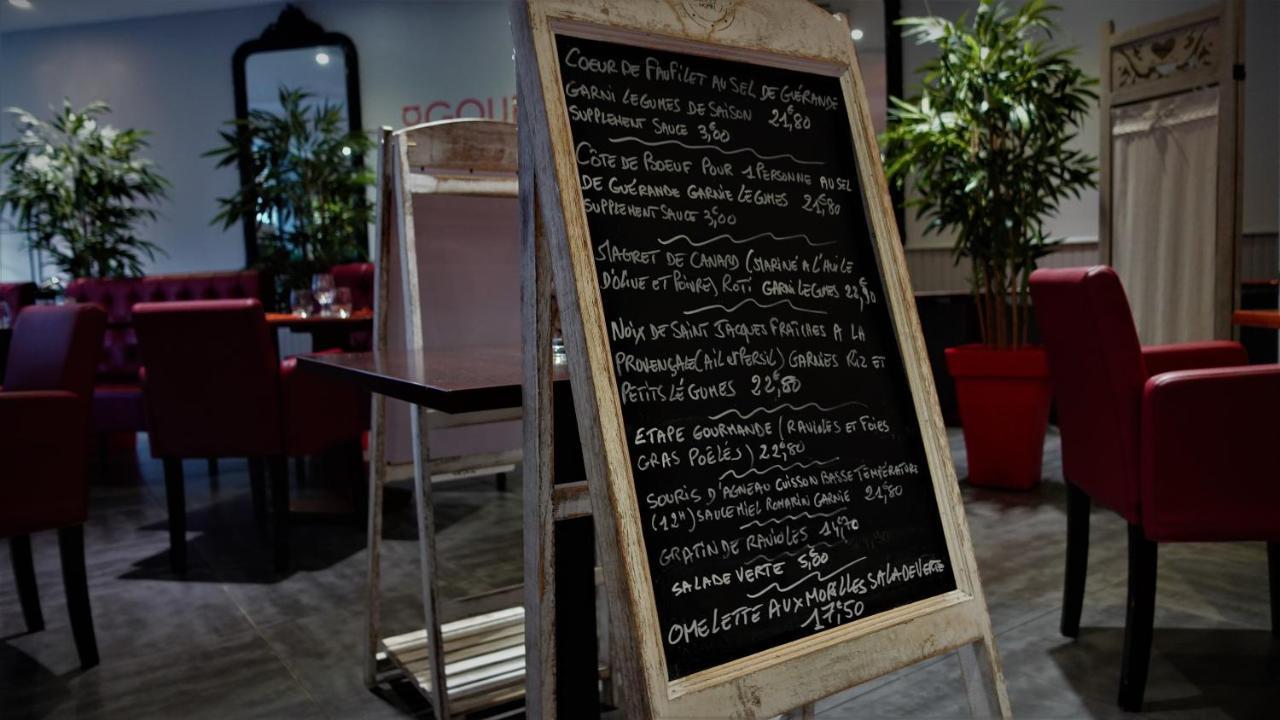 COEUR DE FAUFILET AU SEL DE GUÉRANDE
GARNI LEGUMES DE SAISON 21€,80
SUPPLEMENT SAUCE 3€,00
CÔTE DE BOEUF POUR 1 PERSONNE AU SEL
DE GUÉRANDE GARNIE LEGUMES 21€,80
SUPPLEMENT SAUCE 3€,00
MAGRET DE CANARD (MARINÉ A L'HUILE
D'OLIVE ET POIVRE) ROTI GARNI LEGUMES 22€,80
NOIX DE SAINT JACQUES FRAÎCHES A LA
PROVENÇALE (AIL et PERSIL) GARNIES RIZ ET
PETITS LÉGUMES 22€,80
ETAPE GOURMANDE (RAVIOLES ET FOIES
GRAS POÊLÉS) 22€,80
SOURIS D'AGNEAU CUISSON BASSE TEMPÉRATURE
(12H) SAUCE MIEL ROMARIN GARNIE 21€,80
GRATIN DE RAVIOLES 14€,70
SALADE VERTE 5€,80
OMELETTE AUX MORILLES SALADE VERTE
17€,50